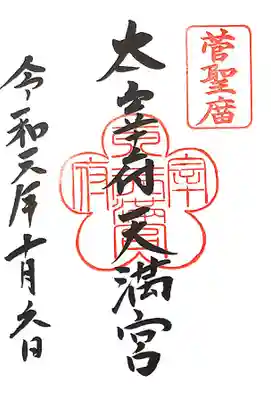 菅聖庿
太宰府天満宮
令和元年十月六日